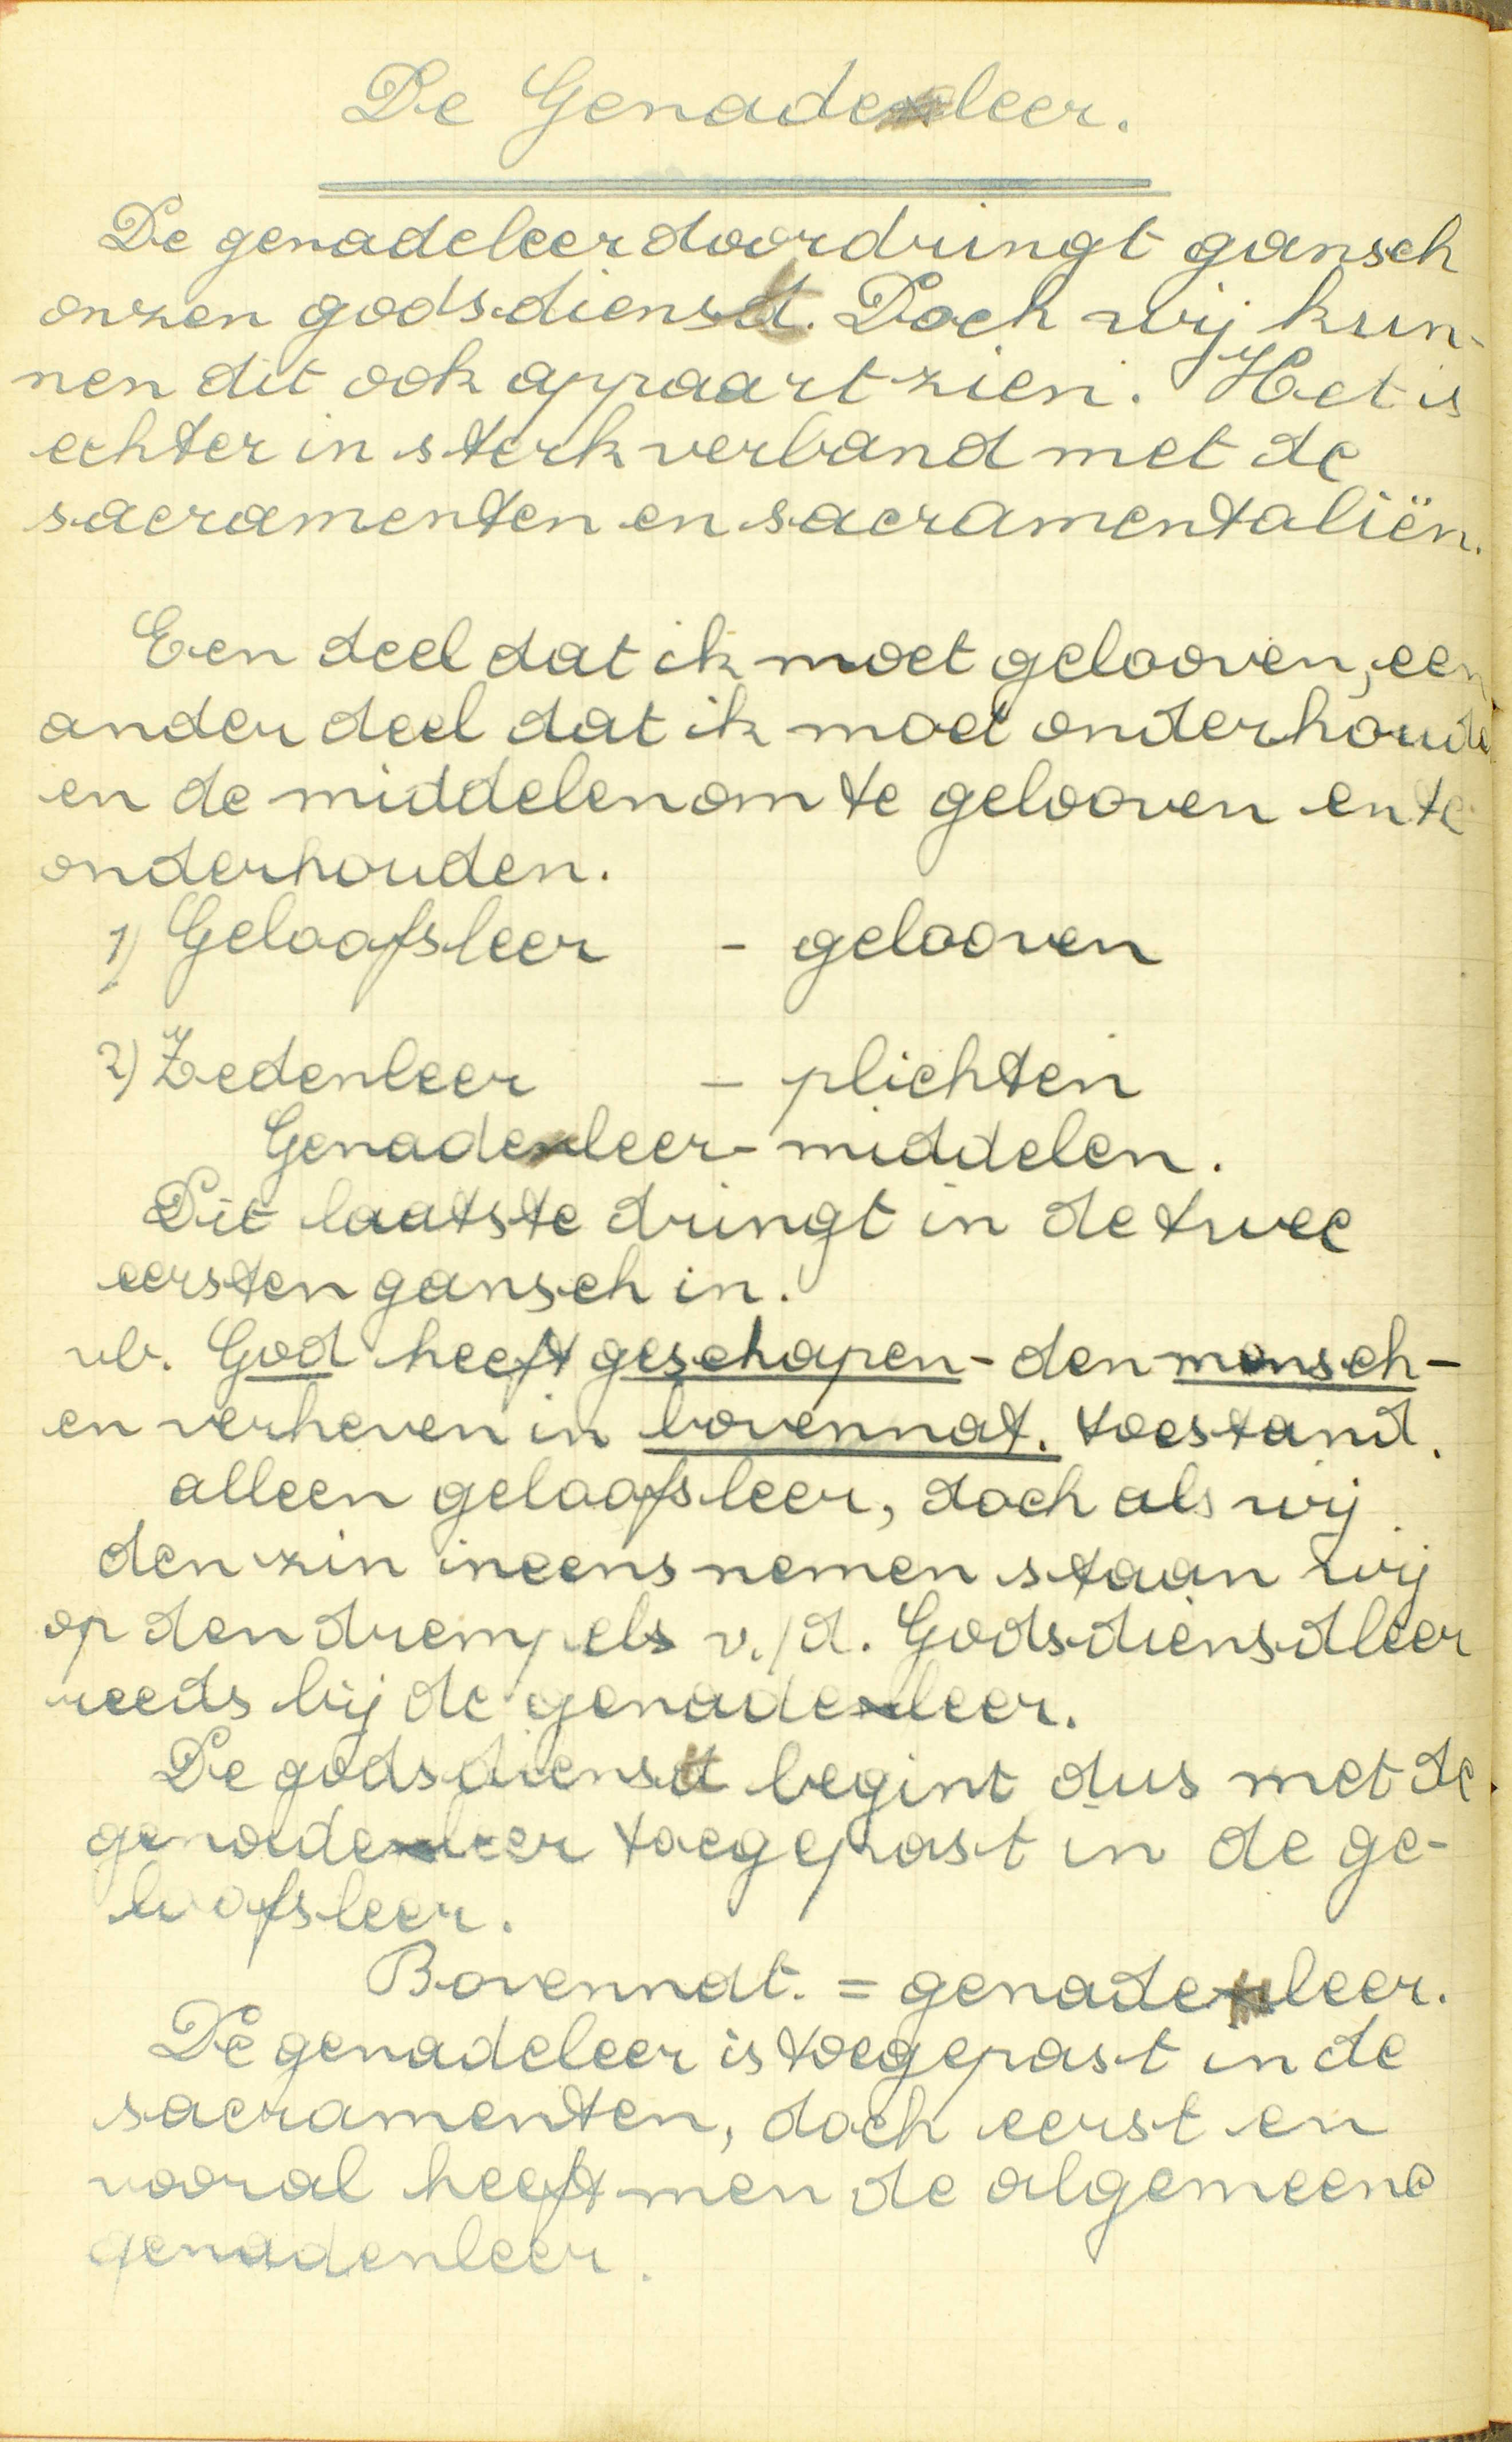 De Genadeleer.
De genadeleer doordringt gansch
onzen godsdienst. Doch wij kun-
nen dit ook appaart zien. Het is
echter in sterk verband met de
sacramenten en sacramentaliën.
Een deel dat ik moet gelooven, een
ander deel dat ik moet onderhoude
en de middelen om te gelooven en te
onderhouden.
1) Geloofsleer - gelooven
2) Zedenleer - plichten
Genadeleer - middelen.
Dit laatste dringt in de twee
eersten gansch in.
vb. God heeft geschapen - den mensch -
en verheven in bovennat. toestand.
alleen geloofsleer, doch als wij
den zin ineens nemen staan wij
op den drempels v./d. Godsdiensdleer
reeds bij de genadeleer.
De godsdienst begint dus met de
genadeleer toegepast in de ge-
loofsleer.
Bovennat. = genadeleer.
De genadeleer is toegepast in de
sacramenten, doch eerst en
vooral heeft men de algemeene
genadenleer.